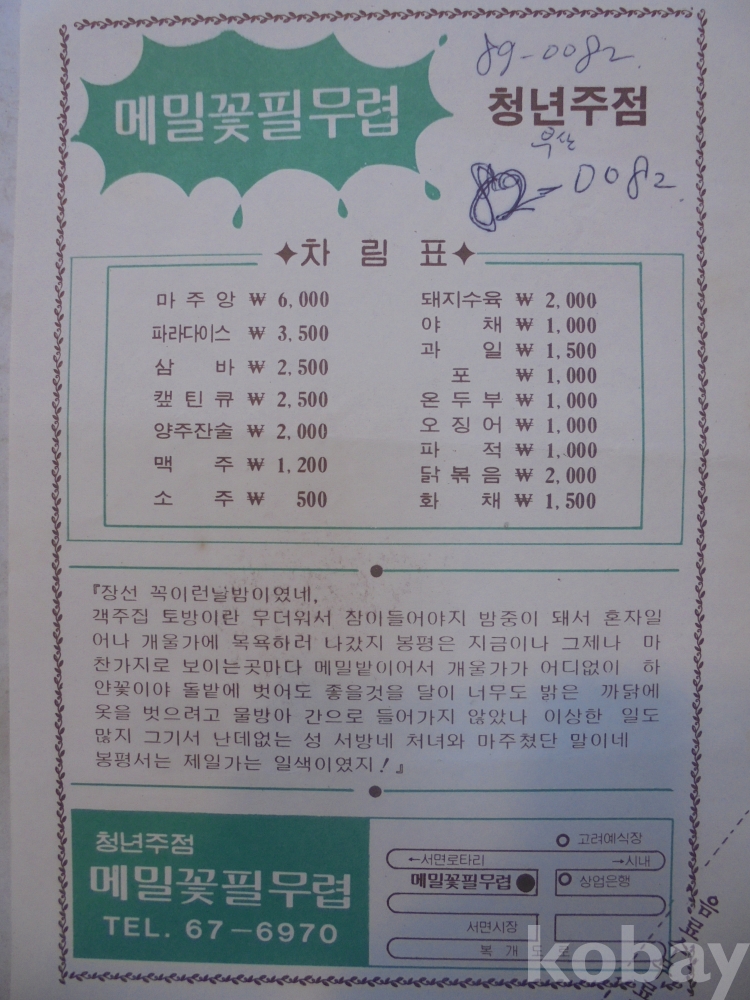 89-0082
메밀꽃필무렵
청년주점
부산
82-0082
✦차 림 표✦
마 주 앙 ₩ 6,000
파라다이스 ₩ 3,500
삼 바 ₩ 2,500
캪 틴 큐 ₩ 2,500
양주잔술 ₩ 2,000
맥 주 ₩ 1,200
소 주 ₩ 500
돼지수육 ₩ 2,000
야 채 ₩ 1,000
과 일 ₩ 1,500
포 ₩ 1,000
온 두 부 ₩ 1,000
오 징 어 ₩ 1,000
파 적 ₩ 1,000
닭 볶 음 ₩ 2,000
화 채 ₩ 1,500
『장선 꼭이런날밤이였네,
객주집 토방이란 무더워서 잠이들어야지 밤중이 돼서 혼자일
어나 개울가에 목욕하러 나갔지 봉평은 지금이나 그제나 마
찬가지로 보이는곳마다 메밀밭이어서 개울가가 어디없이 하
얀꽃이야 돌밭에 벗어도 좋을것을 달이 너무도 밝은 까닭에
옷을 벗으려고 물방아 간으로 들어가지 않았나 이상한 일도
많지 그기서 난데없는 성 서방네 처녀와 마주쳤단 말이네
봉평서는 제일가는 일색이였지!』
청년주점
메밀꽃필무렵
TEL. 67-6970
고려예식장
←서면로타리
→시내
메밀꽃필무렵
상업은행
서면시장
복 개 도 로
kobay